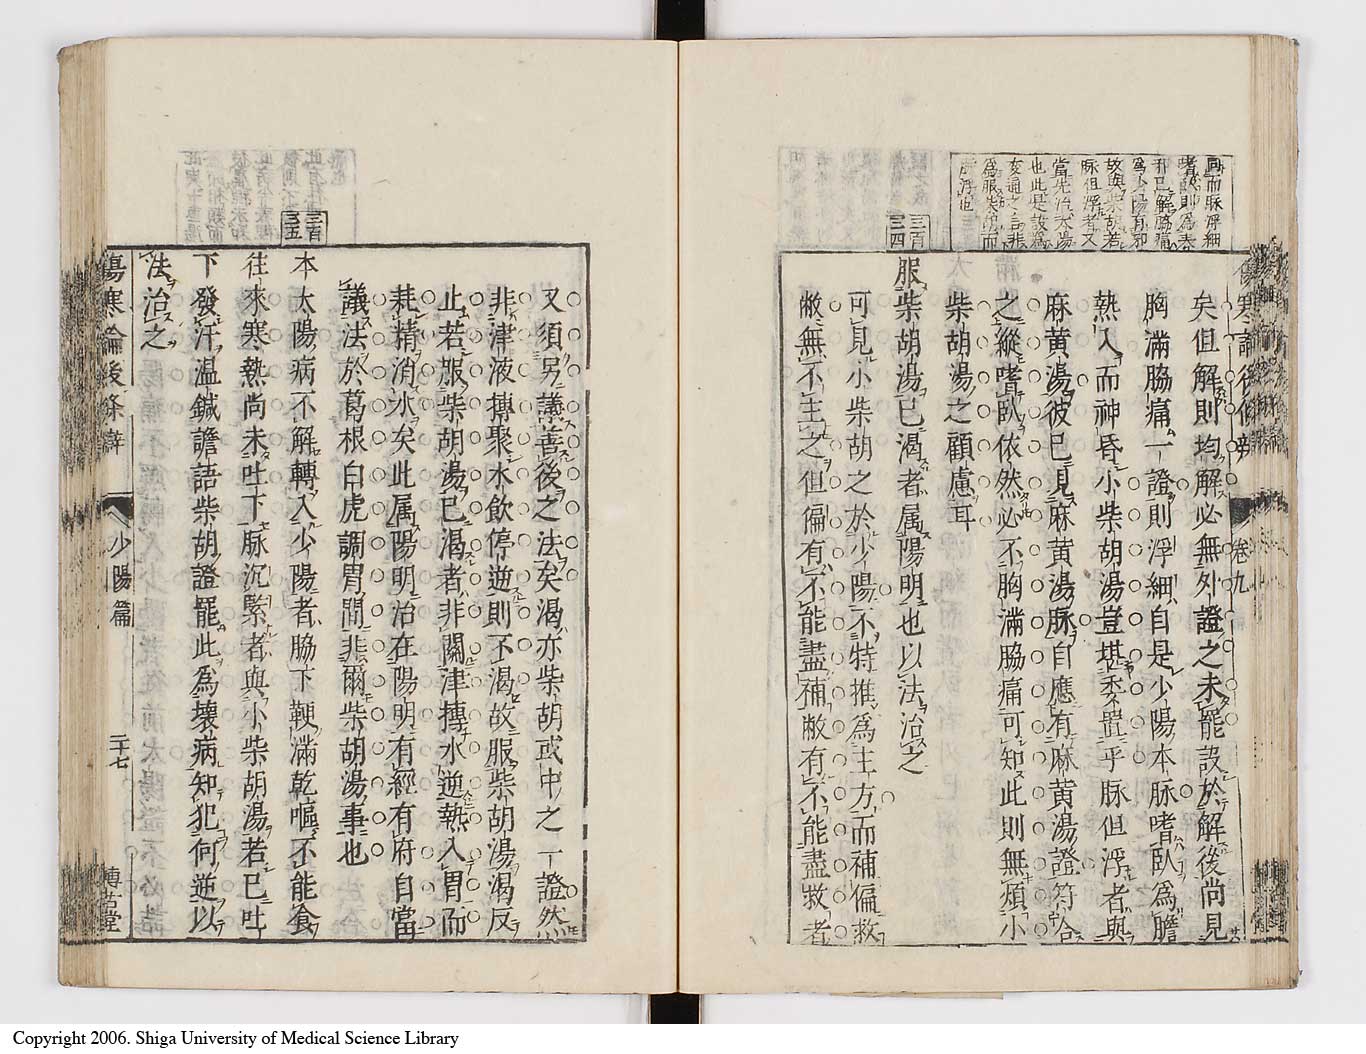 同而脉浮細
嗜臥則為太
陽已解脇痛
為少陽有邪
故與柴胡若
脉但浮者又
當先治太陽
也此是設為
変通之言非
為服柴胡而
脉浮也
矣但解則均解必無外證之未罷設於解後尚見
胸滿脇痛一證則浮細自是少陽本脉嗜臥為膽
熱入而神昏小柴胡湯豈堪委置乎脉但浮者與
麻黄湯彼已見麻黄湯脉自應有麻黄湯證符合
之縱嗜臥依然必不胸滿脇痛可知此則無煩小
柴胡湯之顧慮耳
三百三四
服柴胡湯已渴者属陽明也以法治之
可見小柴胡之於少陽不特推為主方而補偏救
敝無不主之但偏有不能盡補敝有不能盡救者
卷九
又須另議善後之法矣渴亦柴胡或中之一證然
非津液摶聚水飲停逆則不渴故服柴胡湯渴反
止若服柴胡湯已渴者非關津摶水逆熱入胃而
耗精消水矣此属陽明治在陽明有經有府自當
議法於葛根白虎調胃間非爾柴胡湯事也
三百三五
本太陽病不解轉入少陽者脇下鞕滿乾嘔不能食
往來寒熱尚未吐下脉沉緊者與小柴胡湯若已吐
下發汗温鍼譫語柴胡證罷此為壞病知犯何逆以
法治之
傷寒論後條辯 少陽篇 二十七 博古堂
Copyright 2006. Shiga University of Medical Science Library